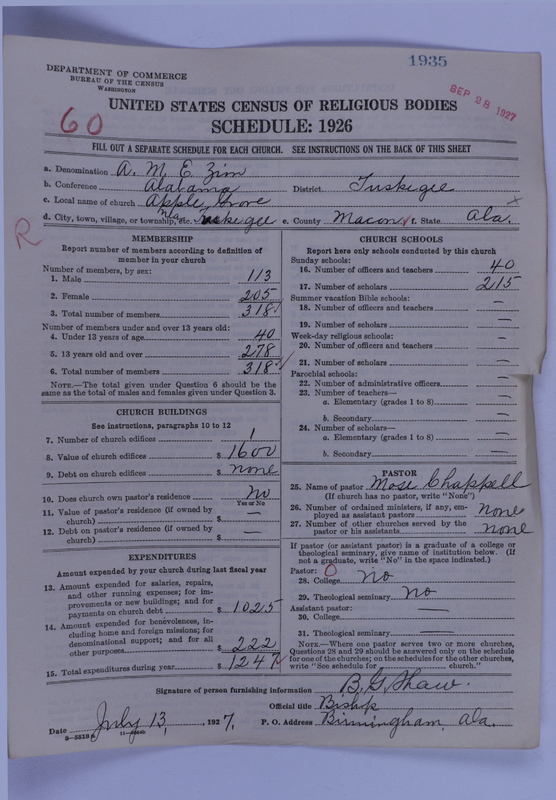 1935
DEPARTMENT OF COMMERCE
BUREAU OF THE CENSUS
WASHINGTON
SEP 28 1927
60
UNITED STATES CENSUS OF RELIGIOUS BODIES
SCHEDULE: 1926
FILL OUT A SEPARATE SCHEDULE FOR EACH CHURCH. SEE INSTRUCTIONS ON THE BACK OF THIS SHEET
a. Denomination A. M. E. Zion
b. Conference Alabama District Tuskegee
c. Local name of church Apple Grove x
d. City, town, village, or township, etc. Tuskegee e. County Macon f. State Ala.
R
MEMBERSHIP
Report number of members according to definition of
member in your church
Number of members, by sex:
1. Male 113
2. Female 205
3. Total number of members 318
Number of members under and over 13 years old:
4. Under 13 years of age 40
5. 13 years old and over 278
6. Total number of members 318
NOTE.—The total given under Question 6 should be
same as the total of males and females given under Question 3.
CHURCH BUILDINGS
See instructions, paragraphs 10 to 12
7. Number of church edifices 1
8. Value of church edifices $ 1600
9. Debt on church edifices $ none
10. Does church own pastor's residence No
Yes or No
11. Value of pastor's residence (if owned by
church) $ —
12. Debt on pastor's residence (if owned by
church) $ —
EXPENDITURES
Amount expended by your church during last fiscal year
13. Amount expended for salaries, repairs,
and other running expenses; for im-
provements or new buildings; and for
payments on church debt $ 1025
14. Amount expended for benevolences, in-
cluding home and foreign missions; for
denominational support; and for all
other purposes $ 222
15. Total expenditures during year $ 1247
CHURCH SCHOOLS
Report here only schools conducted by this church
Sunday schools:
16. Number of officers and teachers 40
17. Number of scholars 215
Summer vacation Bible schools:
18. Number of officers and teachers —
19. Number of scholars —
Week-day religious schools:
20. Number of officers and teachers —
21. Number of scholars —
Parochial schools:
22. Number of administrative officers —
23. Number of teachers—
a. Elementary (grades 1 to 8) —
b. Secondary —
24. Number of scholars—
a. Elementary (grades 1 to 8) —
b. Secondary —
PASTOR
25. Name of pastor Mose Chappell
(If church has no pastor, write "None")
26. Number of ordained ministers, if any, em-
ployed as assistant pastors none
27. Number of other churches served by the
pastor or his assistants none
If pastor (or assistant pastor) is a graduate of a college or
theological seminary, give name of institution below. (If
not a graduate, write "No" in the space indicated.)
Pastor: 0
28. College No
29. Theological seminary No
Assistant pastor: —
30. College
31. Theological seminary —
NOTE.—Where one pastor serves two or more churches,
Questions 28 and 29 should be answered only on the schedule
for one of the churches; on the schedules for the other churches,
write "See schedule for church."
Signature of person furnishing information B. G. Shaw.
Official title Biship
Date July 13, 1927. P. O. Address Birmingham, Ala.